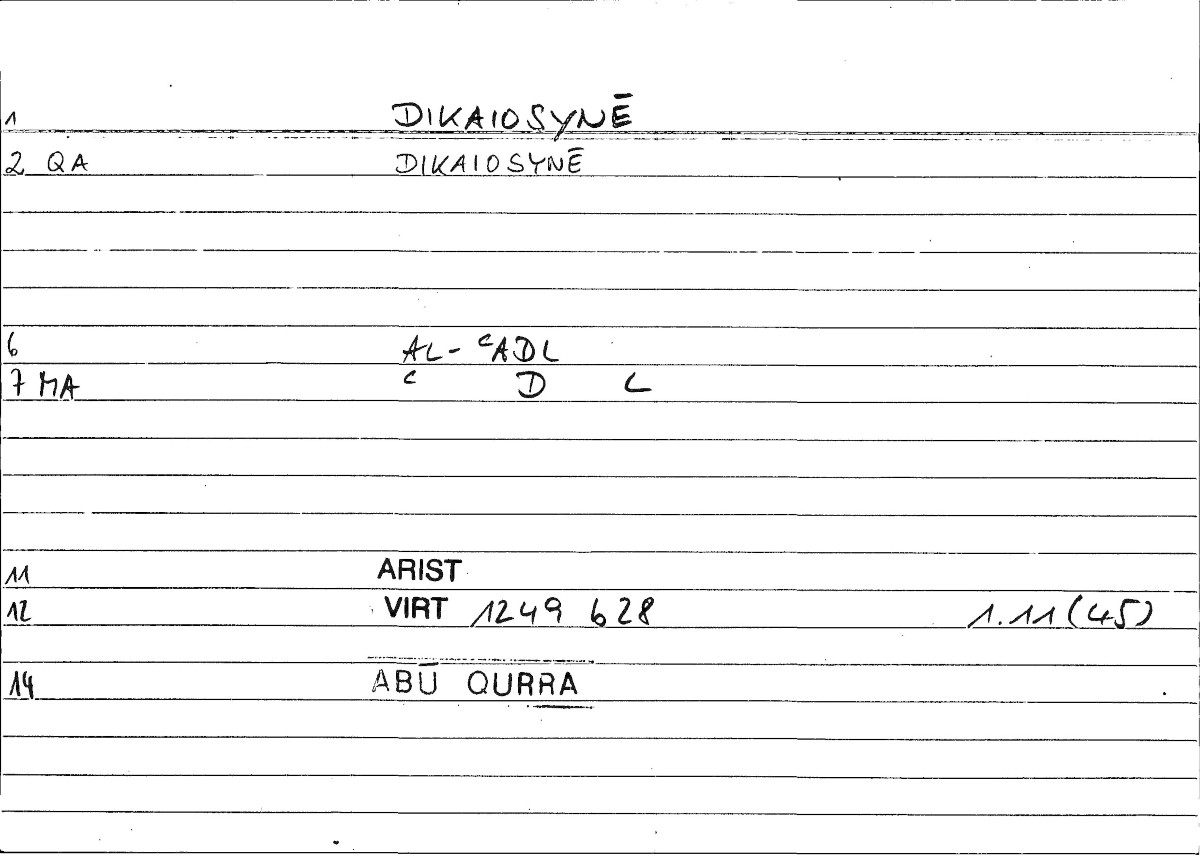 1 DIKAIOSYNĒ
2 QA DIKAIOSYNĒ
6 AL-ᶜADL
7 MA ᶜ D L
11 ARIST
12 VIRT 1249 b 28 1.11 (45)
14 ABŪ QURRA